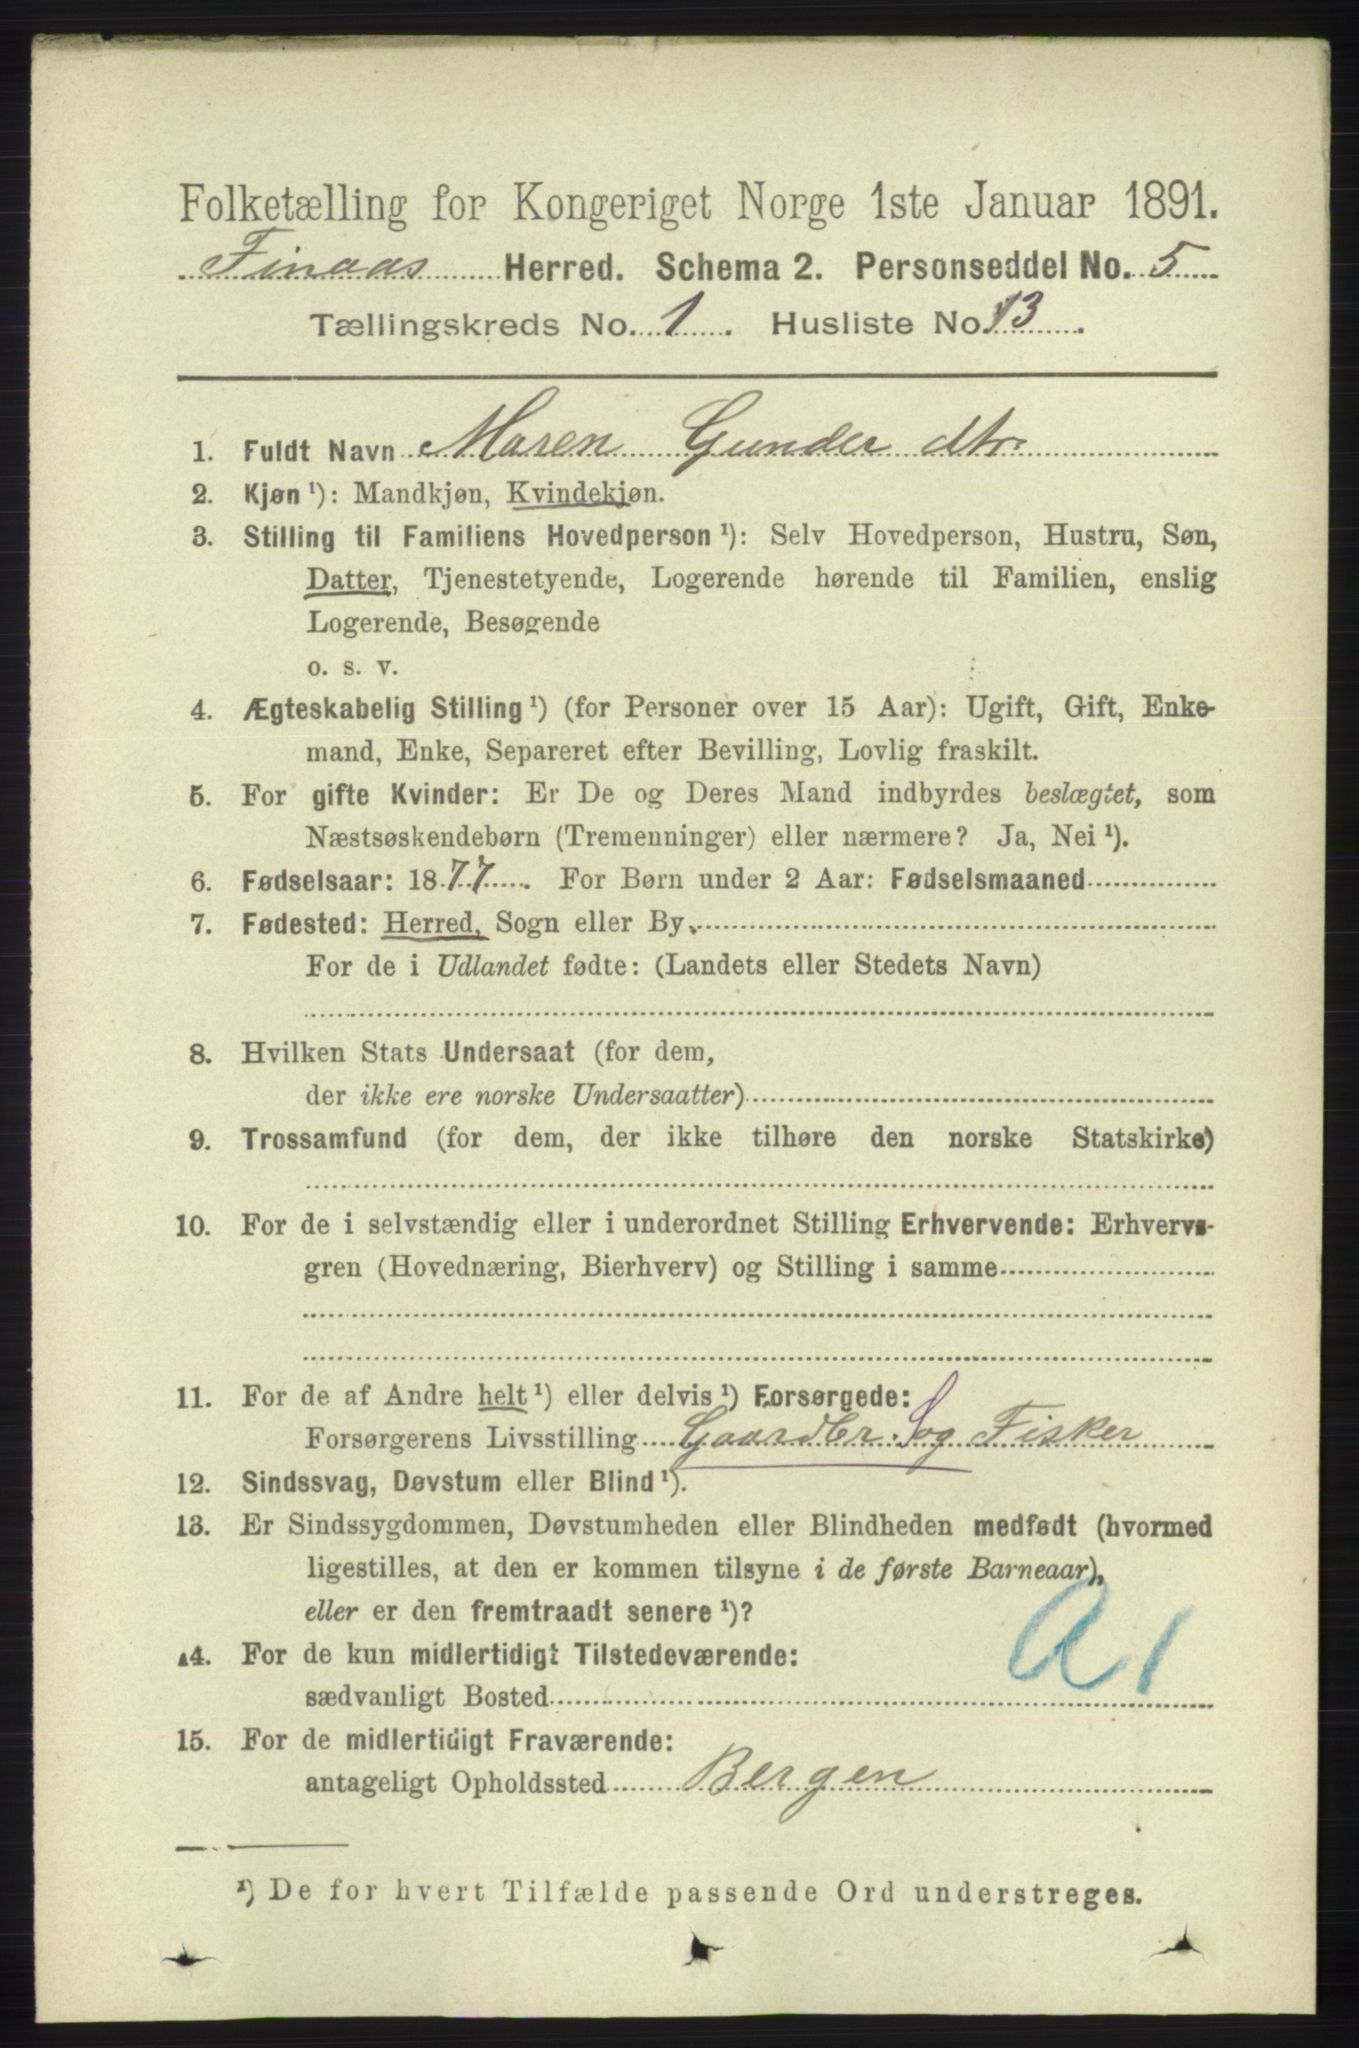 Folketælling for Kongeriget Norge 1ste Januar 1891.
Finaas Herred. Schema 2. Personseddel No. 5
Tællingskreds No. 1. Husliste No. 13.
1. Fuldt Navn Maren Gunder dtr.
2. Kjøn ¹): Mandkjøn, Kvindekjøn.
3. Stilling til Familiens Hovedperson ¹): Selv Hovedperson, Hustru, Søn,
Datter, Tjenestetyende, Logerende hørende til Familien, enslig
Logerende, Besøgende
o. s. v.
4. Ægteskabelig Stilling ¹) (for Personer over 15 Aar): Ugift, Gift, Enke-
mand, Enke, Separeret efter Bevilling, Lovlig fraskilt.
5. For gifte Kvinder: Er De og Deres Mand indbyrdes beslægtet, som
Næstsøskendebørn (Tremenninger) eller nærmere? Ja, Nei ¹).
6. Fødselsaar: 1877. For Børn under 2 Aar: Fødselsmaaned
7. Fødested: Herred, Sogn eller By
For de i Udlandet fødte: (Landets eller Stedets Navn)
8. Hvilken Stats Undersaat (for dem,
der ikke ere norske Undersaatter)
9. Trossamfund (for dem, der ikke tilhøre den norske Statskirke)
10. For de i selvstændig eller i underordnet Stilling Erhvervende: Erhvervs-
gren (Hovednæring, Bierhverv) og Stilling i samme
11. For de af Andre helt ¹) eller delvis ¹) Forsørgede:
Forsørgerens Livsstilling Gaardbr. S og Fisker
12. Sindssvag, Døvstum eller Blind ¹).
13. Er Sindssygdommen, Døvstumheden eller Blindheden medfødt (hvormed
ligestilles, at den er kommen tilsyne i de første Barneaar),
eller er den fremtraadt senere ¹)?
14. For de kun midlertidigt Tilstedeværende:
sædvanligt Bosted
a 1
15. For de midlertidigt Fraværende:
antageligt Opholdssted Bergen
¹) De for hvert Tilfælde passende Ord understreges.